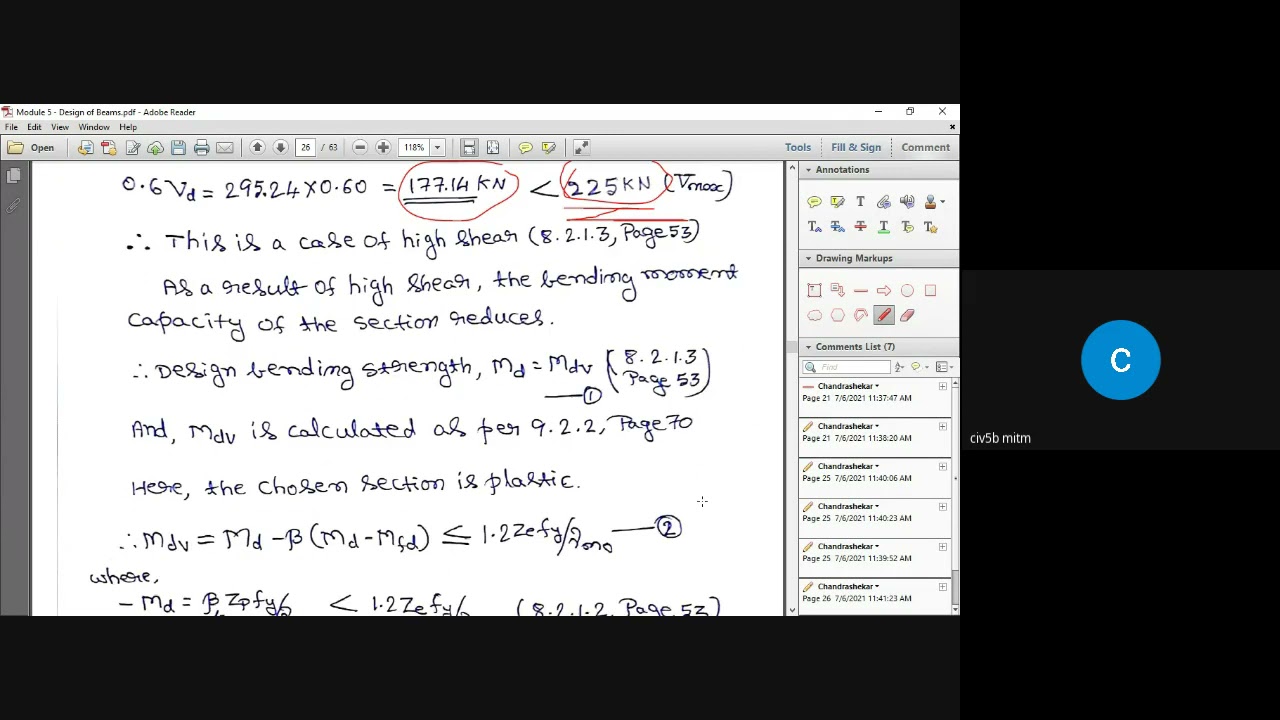 Module 5 - Design of Beams.pdf - Adobe Reader
File Edit View Window Help
Open 26 / 63 118% Tools Fill & Sign Comment
0.6Vd = 295.24 X 0.60 = 177.14 KN < 225KN (Vmax)
∴ This is a case of high shear (8.2.1.3, Page 53)
As a result of high shear, the bending moment
capacity of the section reduces.
∴ Design bending strength, Md = Mdv (8.2.1.3
Page 53)
①
And, Mdv is calculated as per 9.2.2, Page 70
Here, the chosen section is plastic.
∴ Mdv = Md - β (Md - Mfd) ≤ 1.2Zefy/γmo ②
where,
- Md = β Zpfy/ < 1.2Zefy/ (8.2.1.2, Page 53)
Annotations
T
T T T T T
Drawing Markups
Comments List (7)
Find
Chandrashekar
Page 21 7/6/2021 11:37:47 AM
Chandrashekar
Page 21 7/6/2021 11:38:20 AM
Chandrashekar
Page 25 7/6/2021 11:40:06 AM
Chandrashekar
Page 25 7/6/2021 11:40:23 AM
Chandrashekar
Page 25 7/6/2021 11:39:52 AM
Chandrashekar
Page 26 7/6/2021 11:41:23 AM
C
civ5b mitm